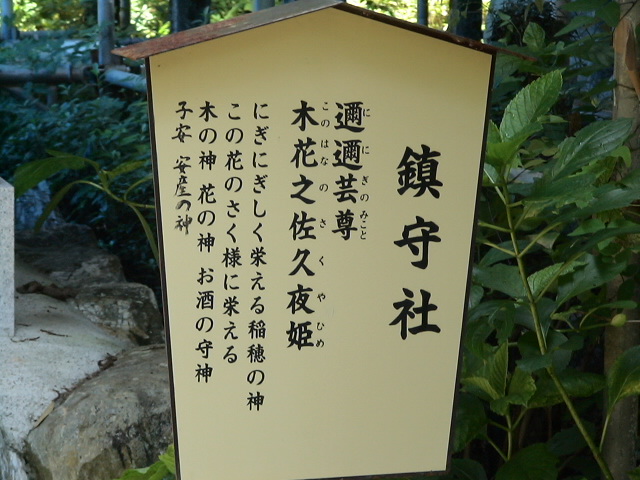 鎮守社
邇邇芸尊
ににぎのみこと
木花之佐久夜姫
このはなのさくやひめ
にぎにぎしく栄える稲穂の神
この花のさく様に栄える
木の神 花の神 お酒の守神
子安 安産の神